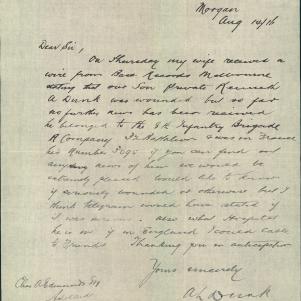 Morgan
Aug 14/16
Dear Sir,
On Thursday my wife received a
wire from Base Records Melbourne
stating that our Son Private Kenneth
A Dunk was wounded but so far
no further news has been received
he belonged to the 8th Infantry Brigade
Company Battalion & was in France
his Number 3095 if you can find out
any news of him we would be
extremely pleased would like to know
if seriously wounded or otherwise but I
think telegram would have stated if
also what Hospital
he is in if in England I could cable
to Friends Thanking you in anticipation
Yours sincerely
A L Dunk
Chas A Edmunds Esq
Adelaide